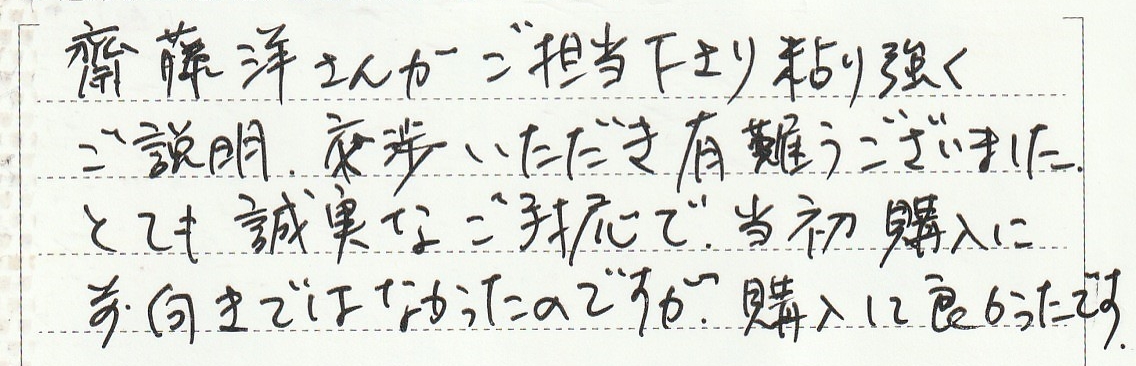 齋藤洋さんがご担当下さり粘り強く
ご説明、交渉いただき有難うございました。
とても誠実なご対応で、当初購入に
前向きではなかったのですが、購入して良かったです。